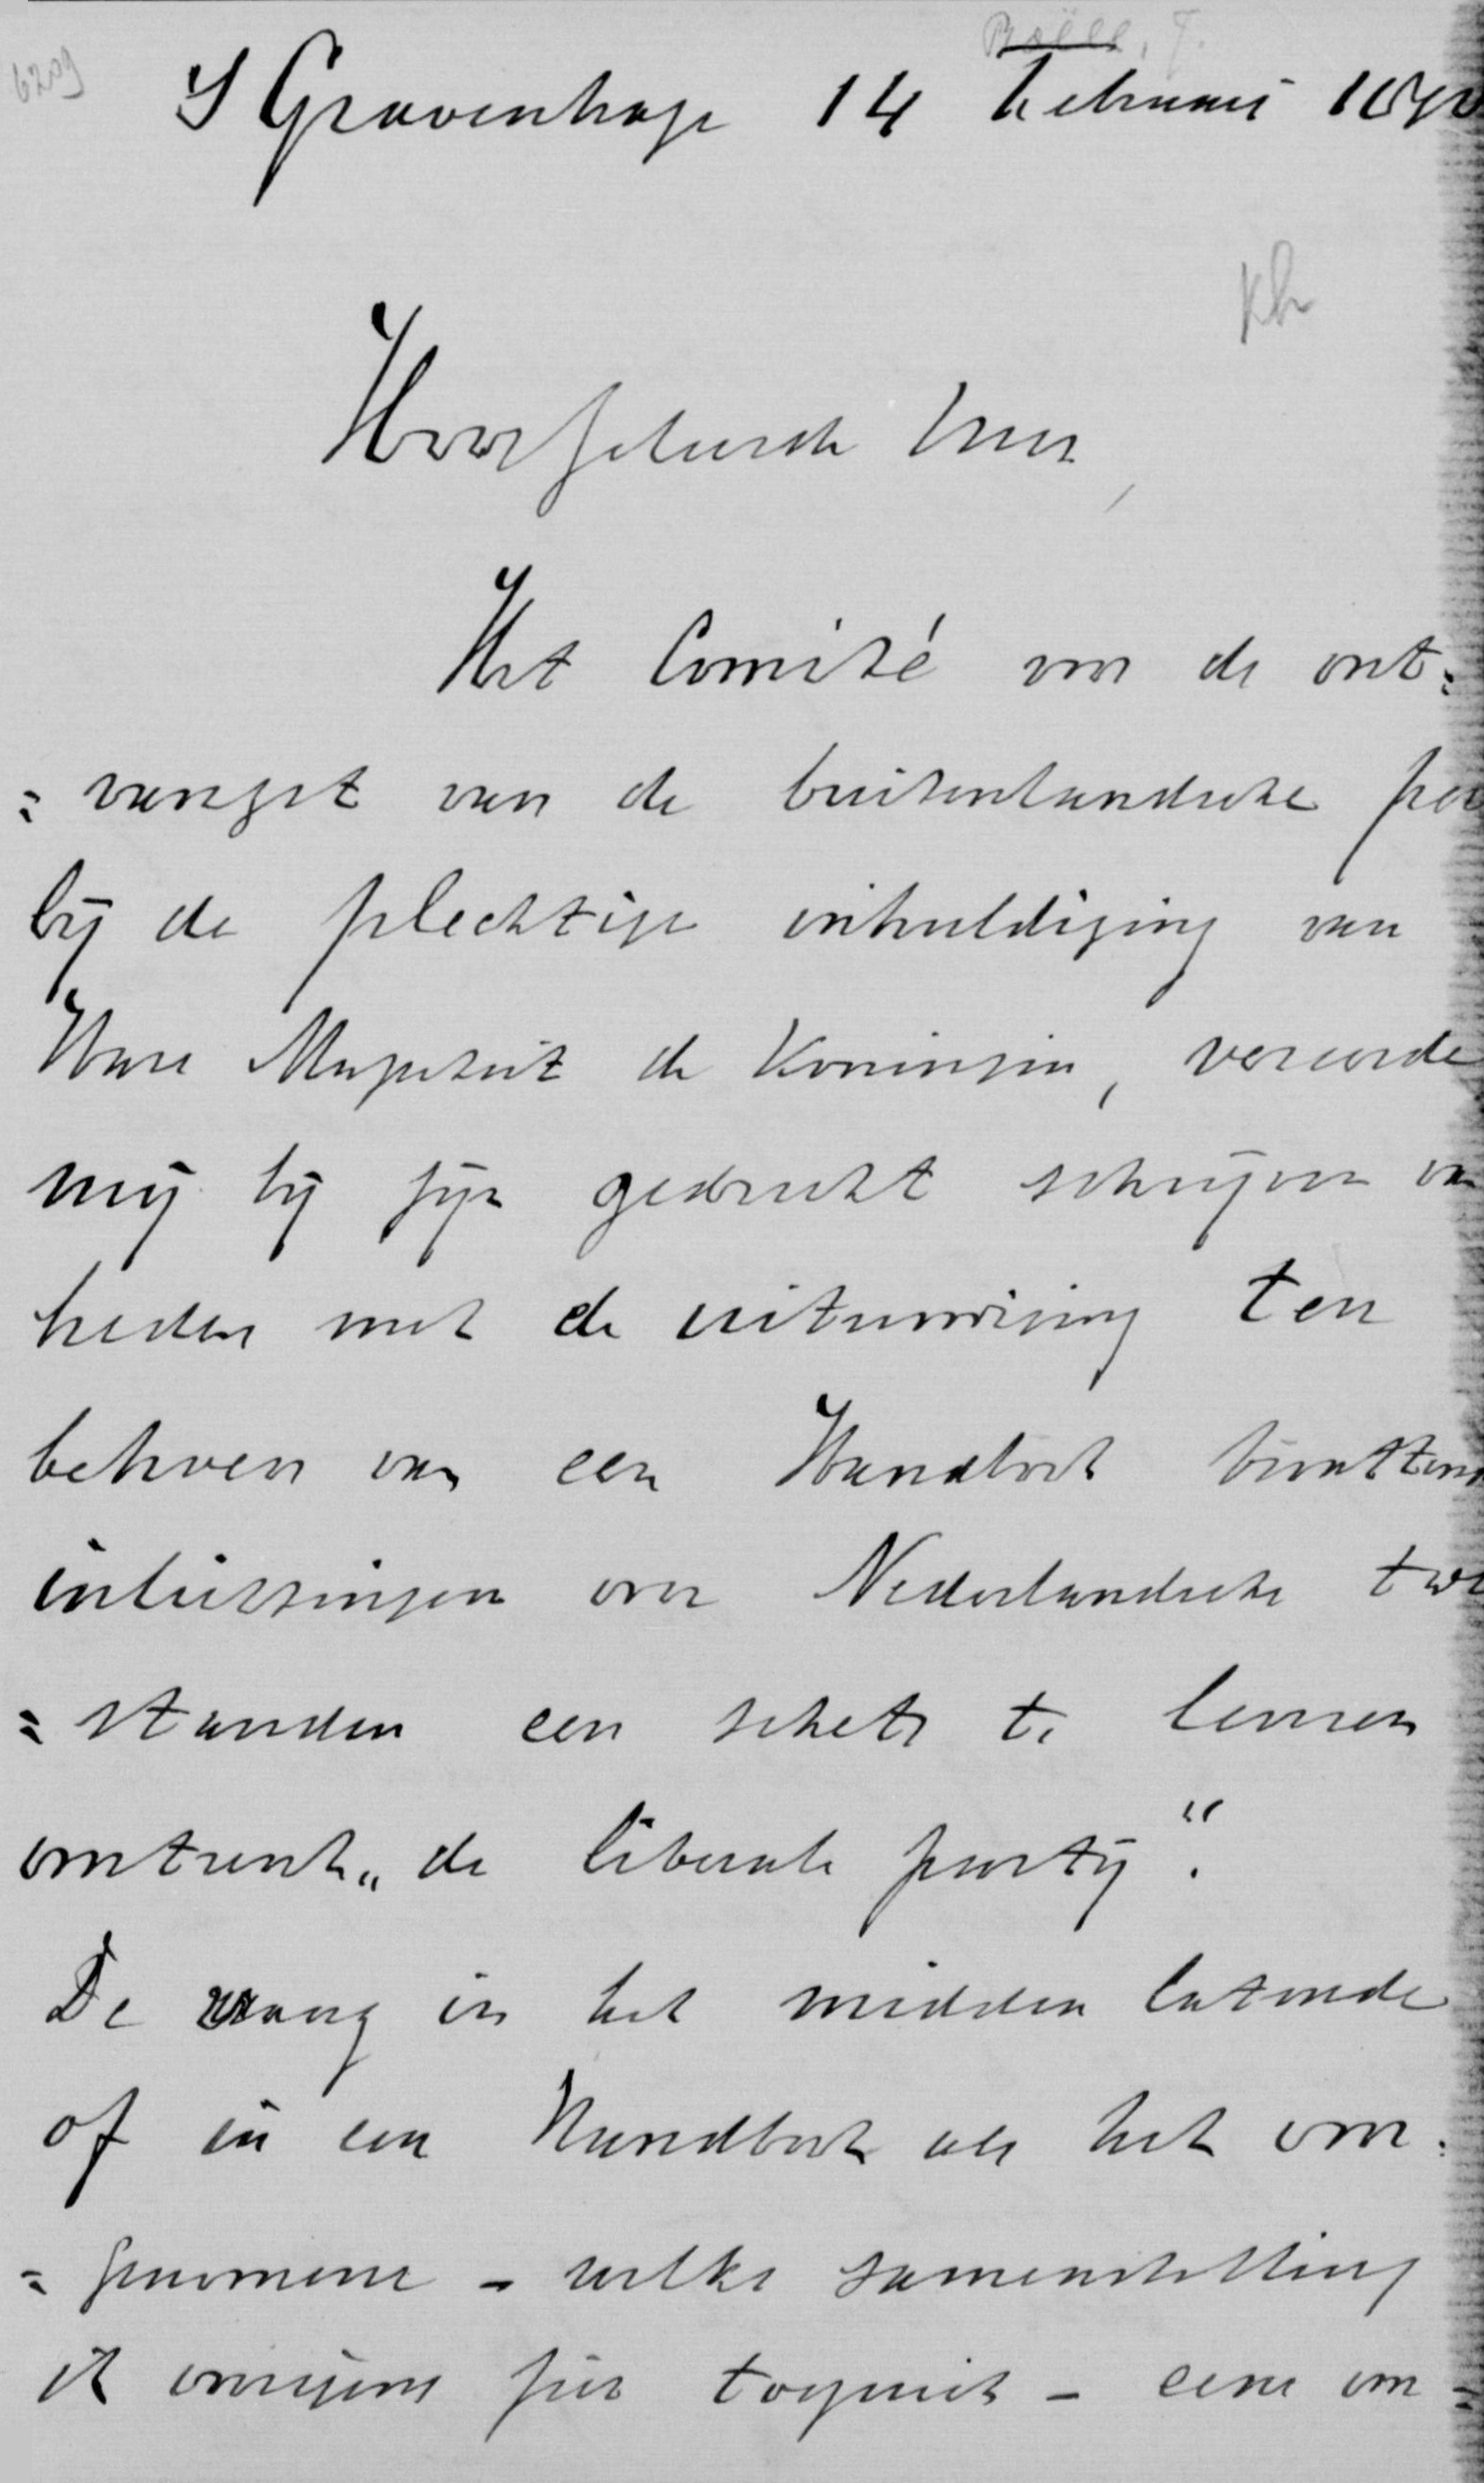 6209
S Gravenhage 14 Februari
Kh
Hooggeleerde Heer,
Het Comité voor de ont=
=vangst van de buitenlandsche
bij de plechtige inhuldiging van
Hare Majesteit de Koningin, vereerde
mij bij zijn gedrukt schrijven van
heden met de uitnoodiging ten
behoeve van een Handboek bevattend
inlichtingen over Nederlandsche toe
=standen een schets te leveren
omtrent „de liberale partij".
De vraag in het midden latende
of in een Handboek als het voor=
=genomene - welke samenstelling
ik overigens zeer toejuich - eene om=